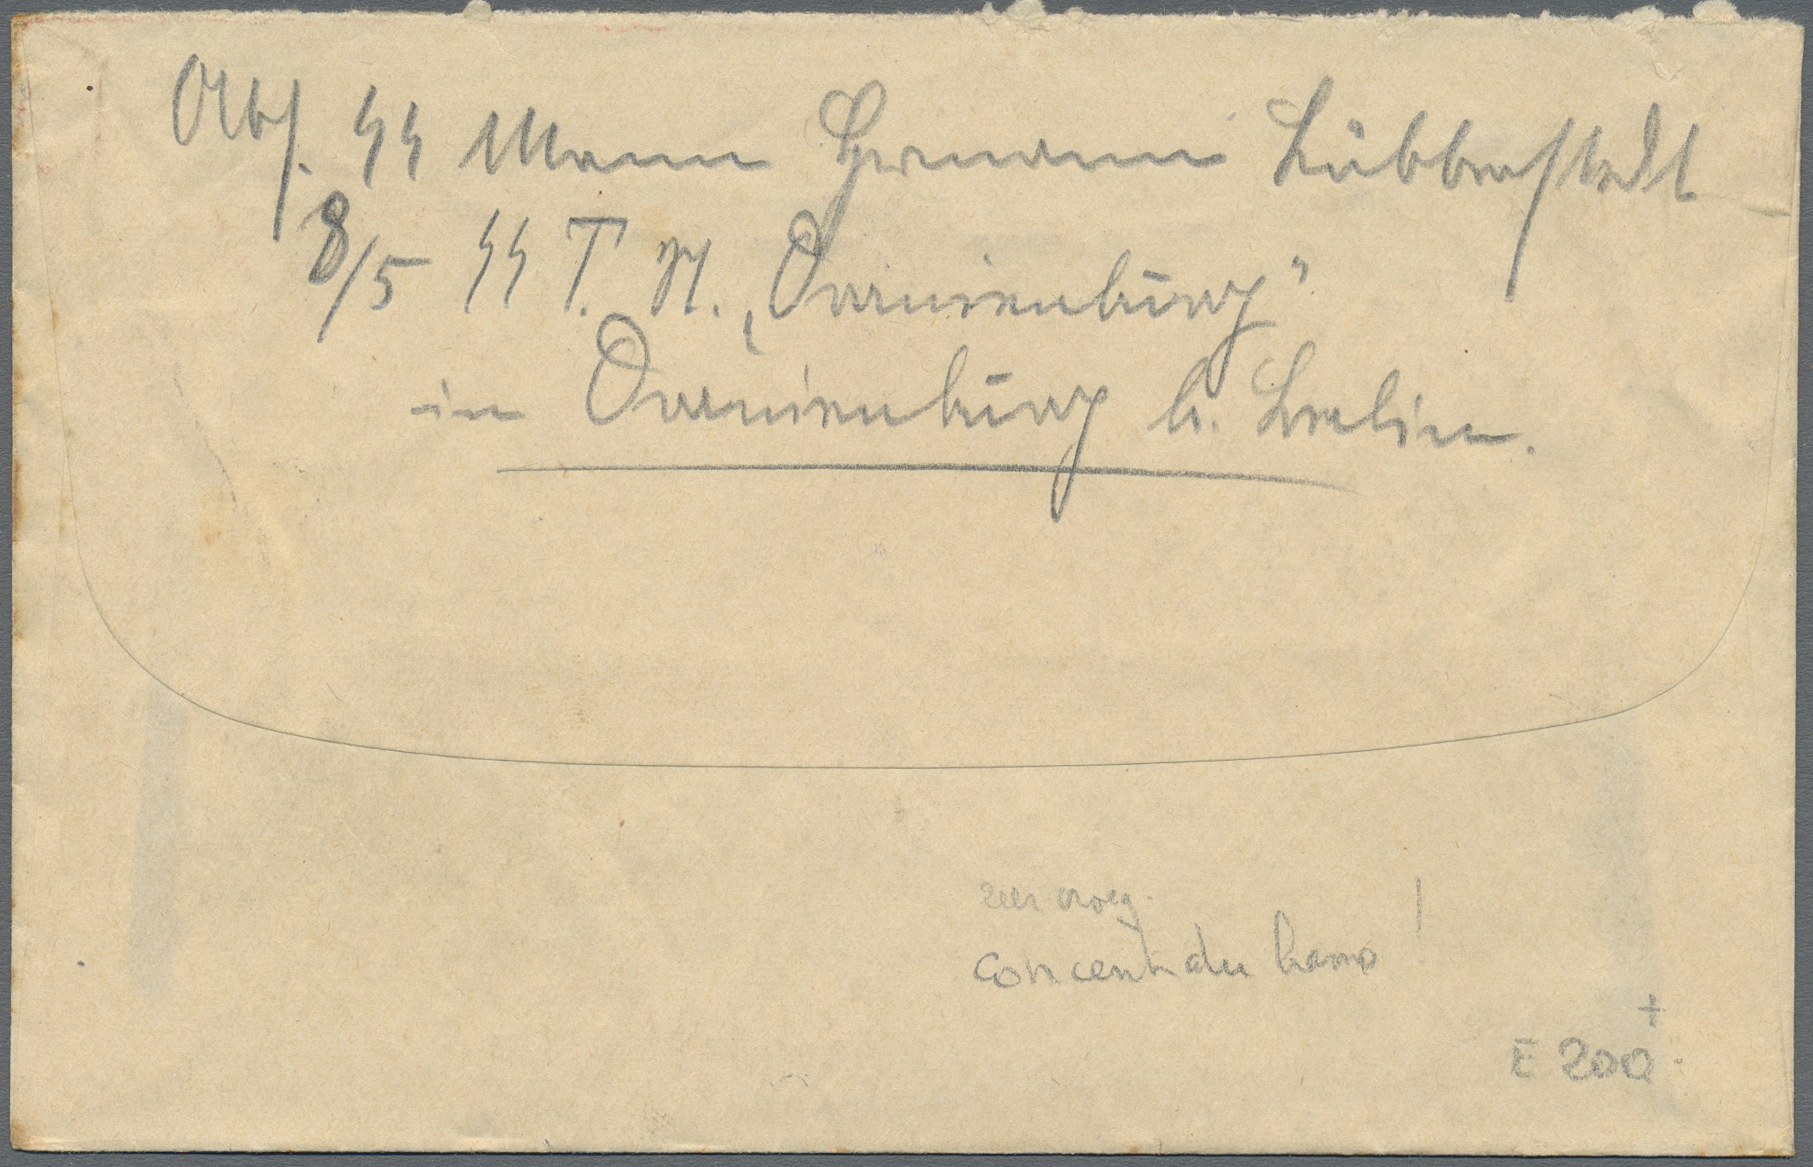 Abs. SS Mann Hermann Lübberstedt
8/5 SS T. St. „Oranienburg"
in Oranienburg b. Berlin.
zeer vroeg.
concentratie kamp !
+
E 200.-